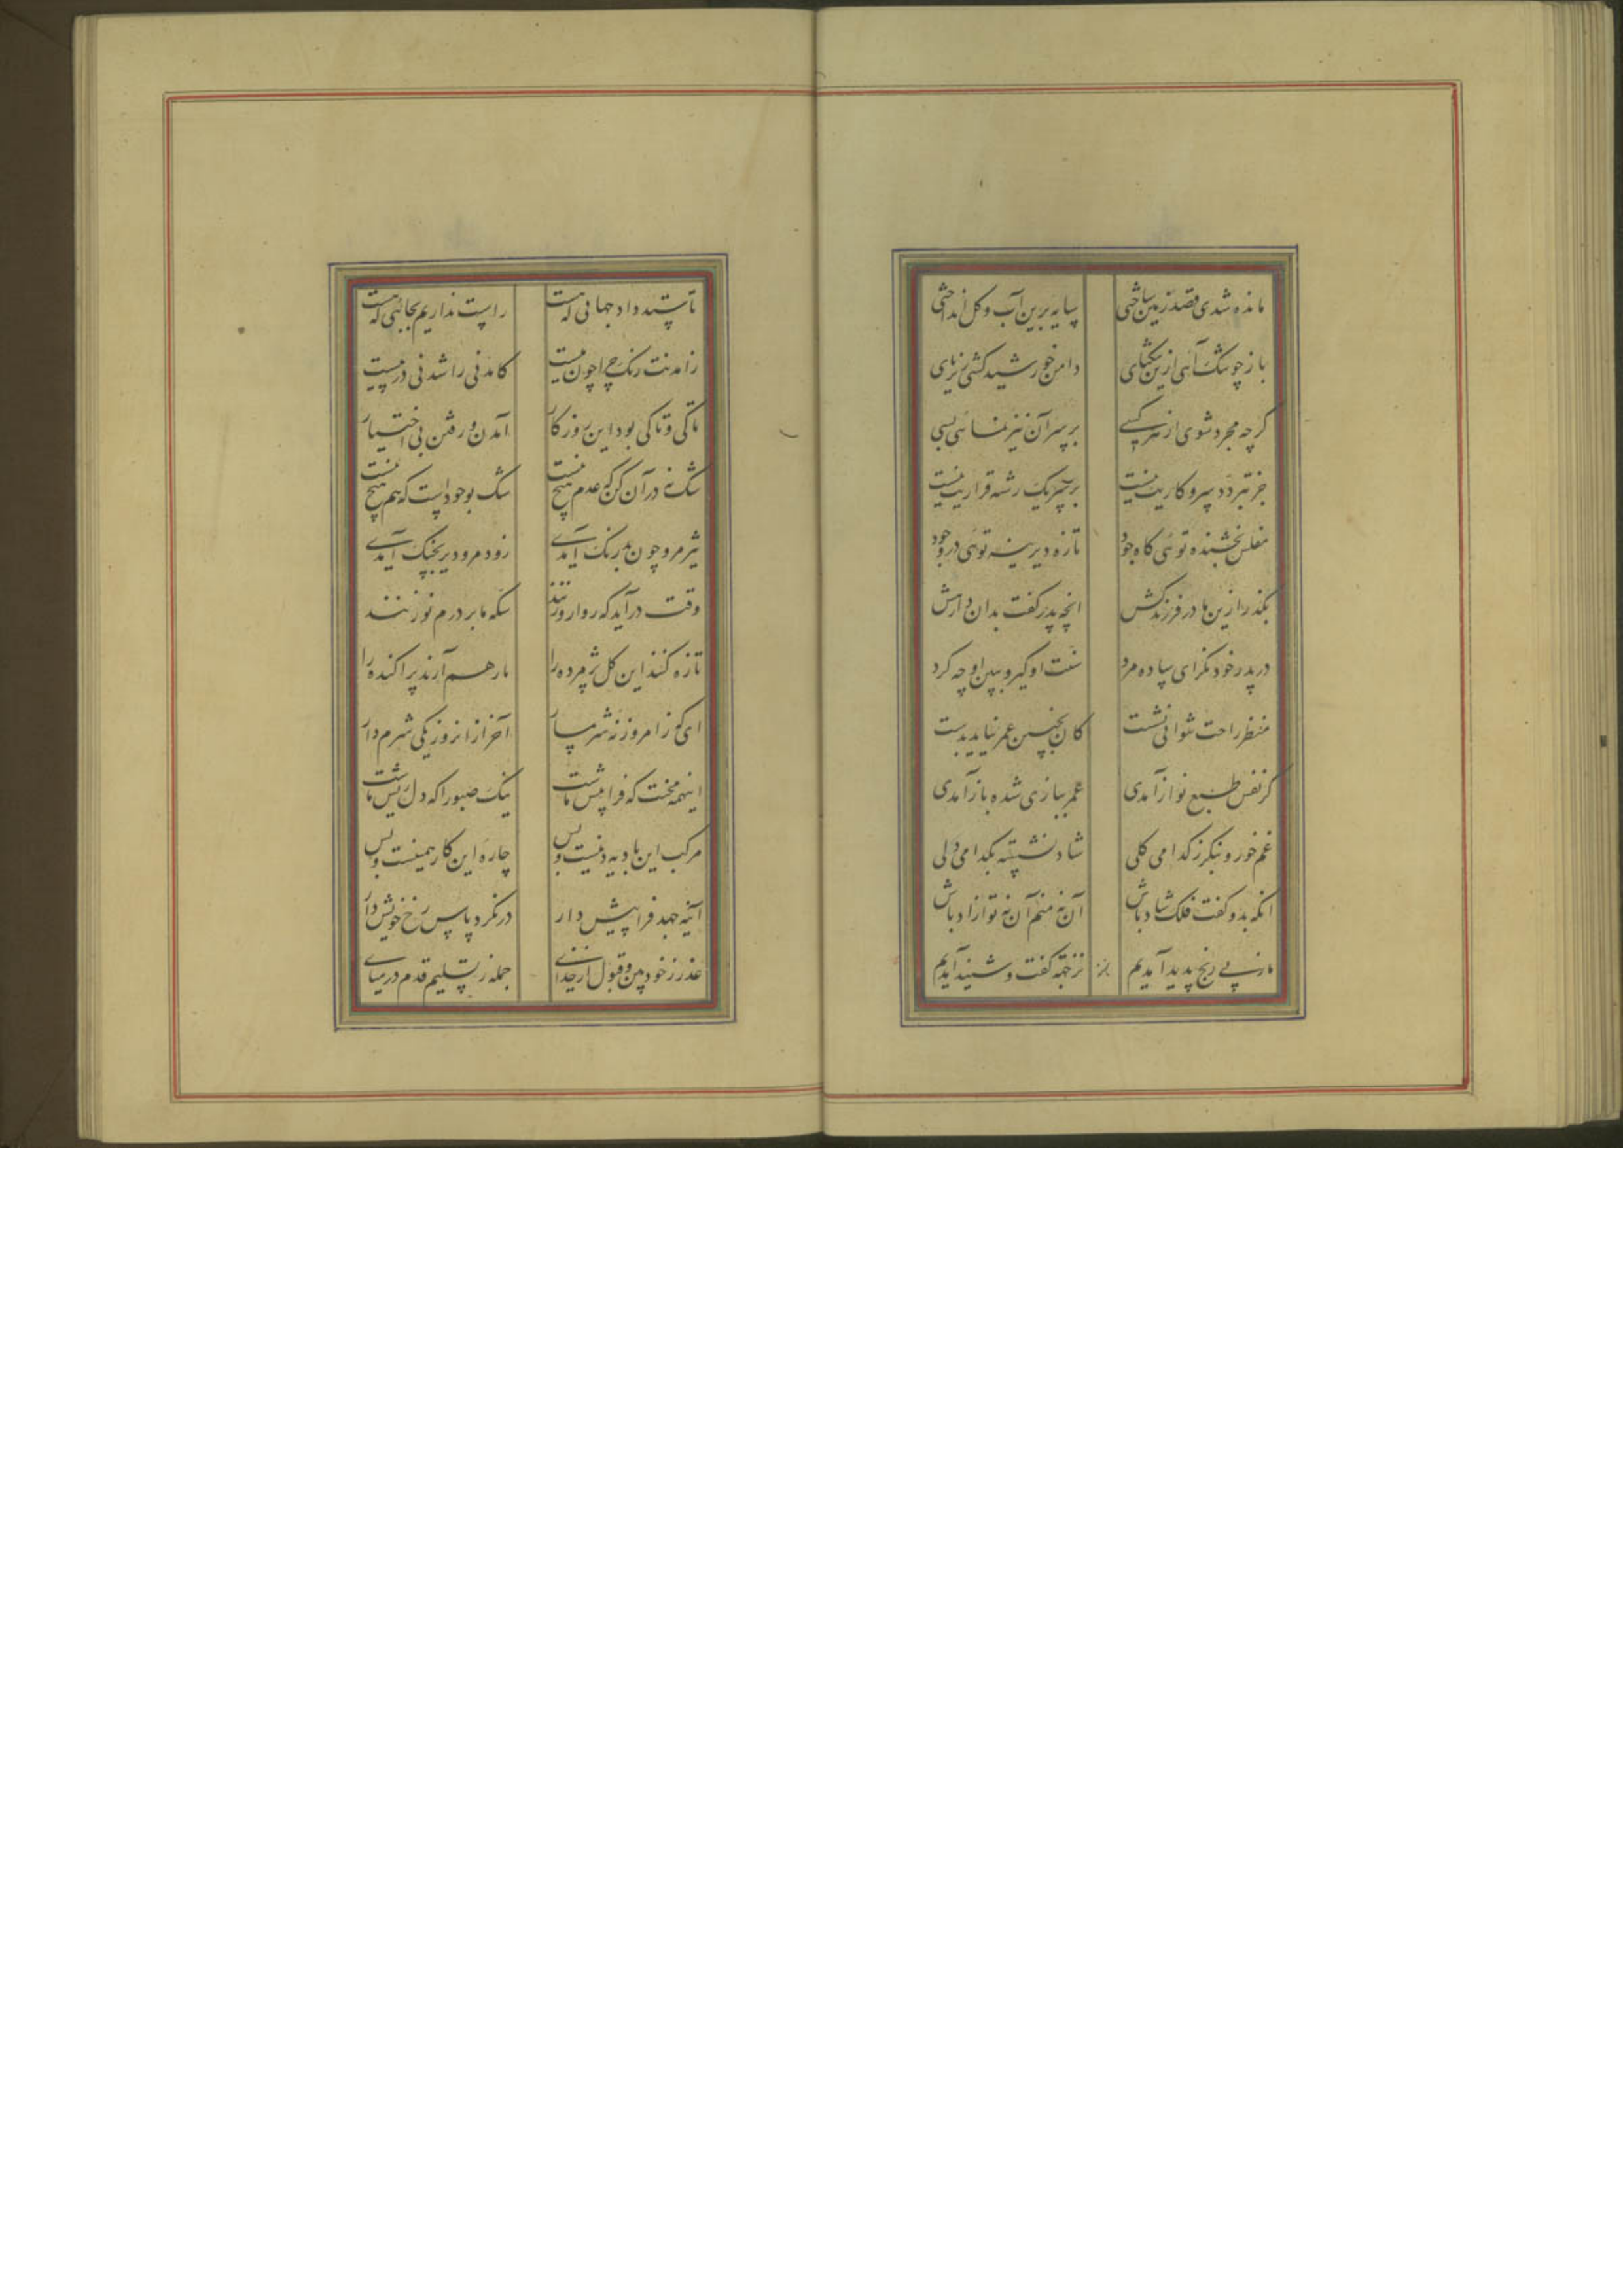 مانده شدی قصد زمین ساختی سایه برین آب و گل انداختی
باز چو تنگ آئی ازین تنگنای دامن خورشید کشی زیر پای
گرچه مجرد شوی از هر کسی بر سر آن نیز نمائی بسی
جز بتردد سر و کاریت نیست بر سر یک رشته قراریت نیست
مفلس بخشنده توئی گاه جود تازه دیرینه توئی در وجود
بگذر ازین مادر فرزندکش آنچه پدر گفت بدان دار هش
در پدر خود نگر ای ساده مرد سنت او گیر و ببین او چه کرد
منتظر راحت نتوانی نشست کان بچنین عمر نیاید بدست
گر نفس طبع نواز آمدی عمر ببازی شده باز آمدی
غم خور و بنگر ز کدامی گلی شاد نشسته بکدامی دلی
آنکه بدو گفت فلک شاد باش آن نه منم آن نه تو آزاد باش
ما ز پی رنج پدید آمدیم نز جهة گفت و شنید آمدیم
تا ستد و داد جهانی که هست راست نداریم بجائی که هست
زامدنت رنگ چرا چون نیست کامدنی را شدنی در پیست
تا کی و تا کی بود این روزگار آمدن و رفتن بی اختیار
شک نه در آن کن که عدم هیچ نیست شک بوجود است که هم هیچ نیست
تیز مرو چون بدرنگ آمدی زود مرو دیر بچنگ آمدی
وقت درآید که روارو زنند سکه ما بر درم نو زنند
تازه کنند این گل پژمرده را باز هم آرند پراکنده را
ای که ز امروز نه شرمسار آخر از آنروز یکی شرم دار
اینهمه محنت که فرا پیش ماست اینک صبورا که دل ریش ماست
مرکب این بادیه دینست و بس چاره این کار همینست و بس
آینه جهد فرا پیش دار درنگر و پاس رخ خویش دار
عذر ز خود بین و قبول از خدای جمله ز تسلیم قدم در میای